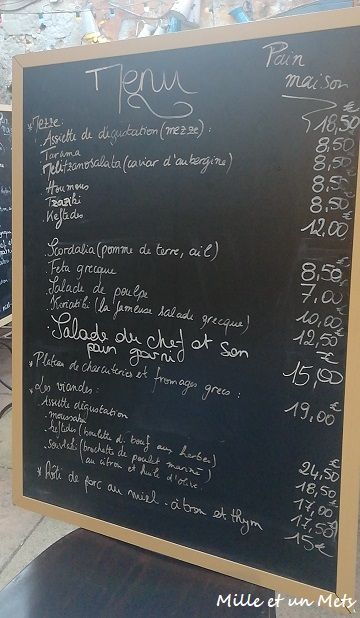 Menu
Pain maison
* Mezze :
. Assiette de dégustation (mezze) : 18,50
. Tarama 8,50
. Melitzanosalata (caviar d'aubergine) 8,50
. Houmous 8,50
. Tzaziki 8,50
. Keftedes 12,00
. Scordalia (pomme de terre, ail) 8,50
. Feta grecque 7,00
. Salade de poulpe 10,00
. Horiatiki (la fameuse salade grecque) 12,50
. Salade du chef et son pain garni 15,00
* Plateau de charcuteries et fromages grecs : 19,00€
* Les viandes :
. Assiette dégustation 24,50
. moussaka 18,50
. keftedes (boulette de bœuf aux herbes) 17,00
. souvlaki (brochette de poulet mariné 17,50
au citron et huile d'olive)
* Rôti de porc au miel, citron et thym 15€
Mille et un Mets